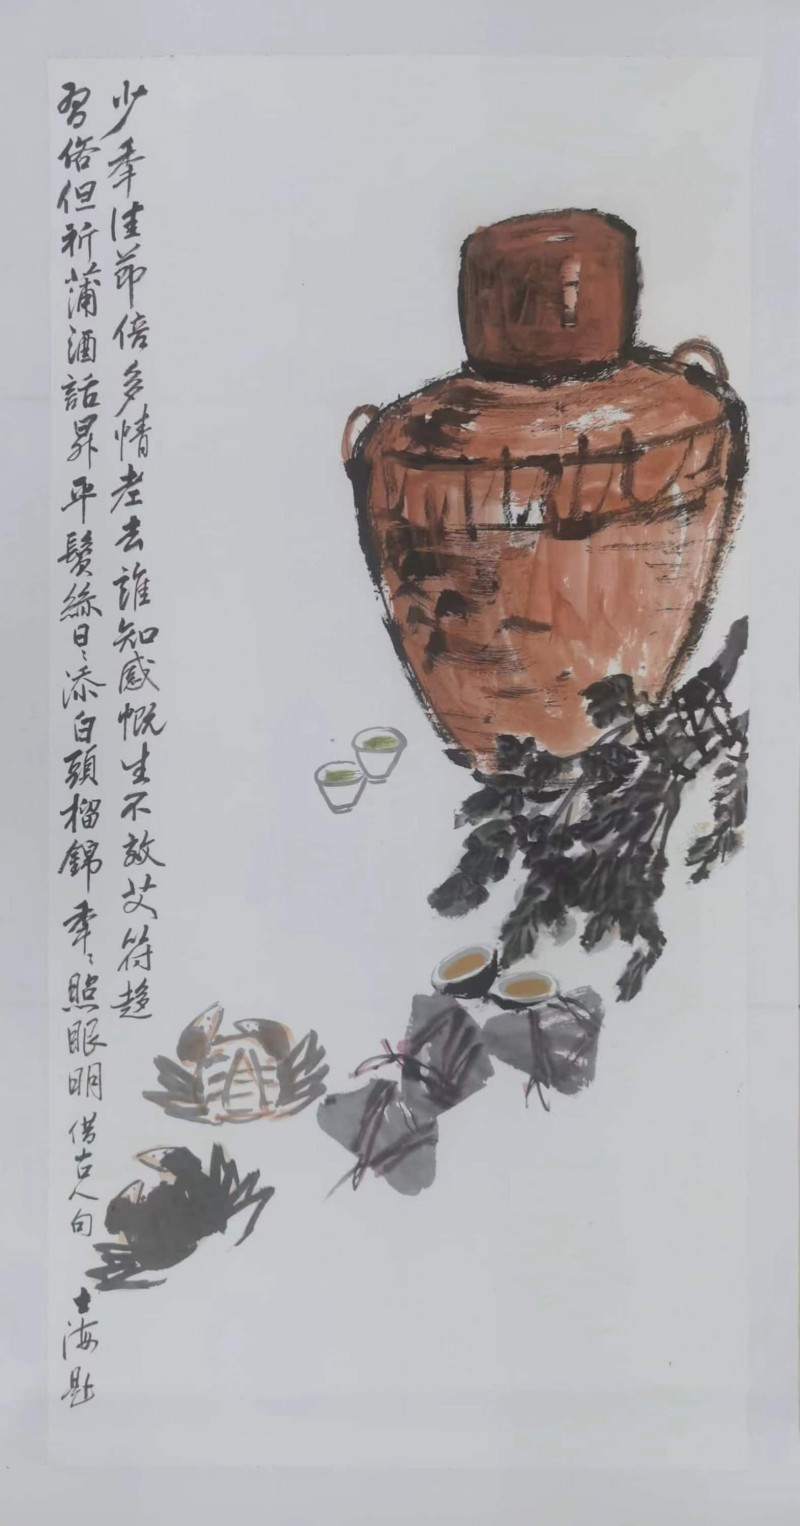 少年佳節倍多情老去誰知感慨生不效艾符趨
習俗但祈蒲酒話昇平鬢絲日〻添白頭榴錦年〻照眼明借古人句
士海題